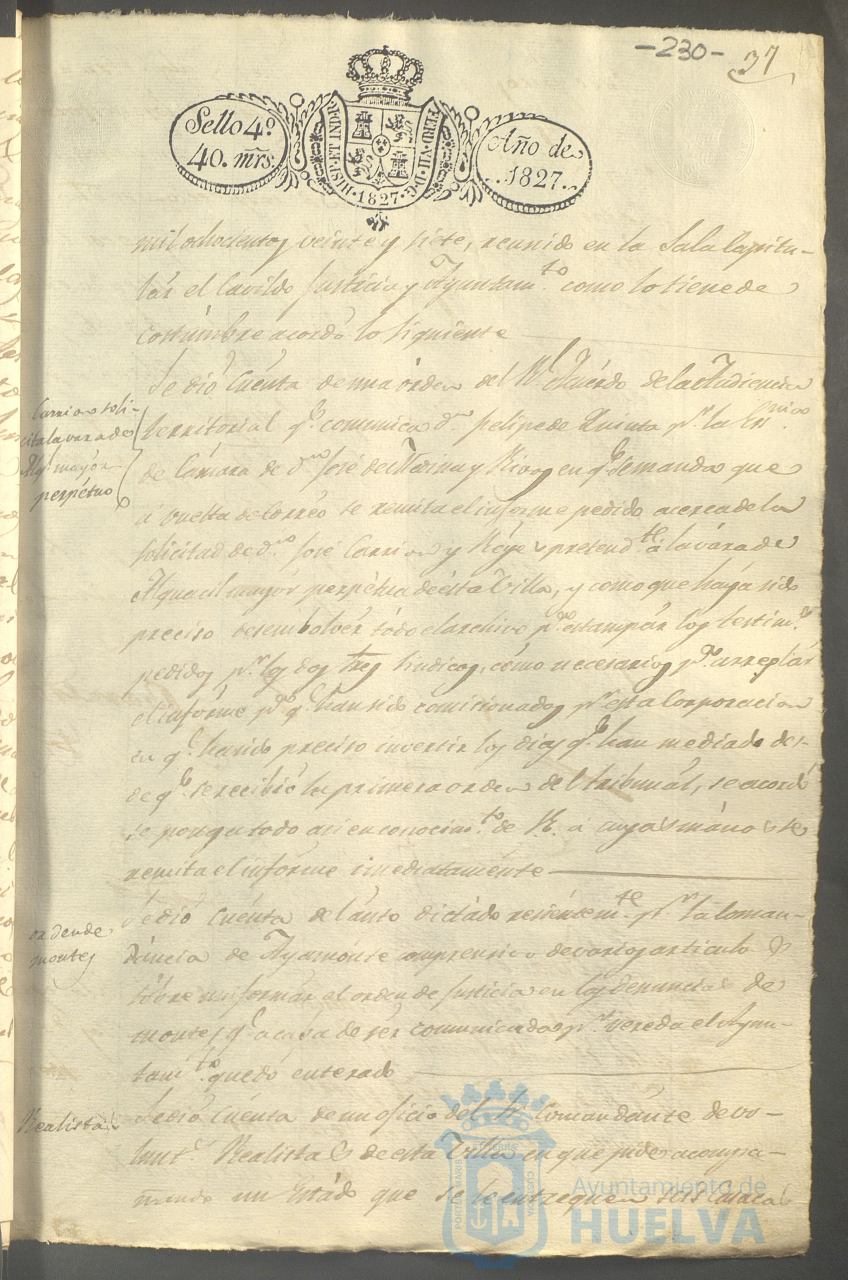 -230-
37
Sello 4º
40. mrs.
HISP. ET IND. R. 1827. FERD. VII. D. G.
Año de
1827.
mil ochocientos veinte y siete, reunido en la Sala Capitu-
lar el Cavildo Justicia y Ayuntam.to como lo tiene de
costumbre acordó lo siguiente
Carrion soli-
cita la vara de
Alg.l mayor
perpétuo
Se dió Cuenta de una órden del R.l Acuerdo de la Audiencia
territorial q.e comunica d.n Felipe de Quinta p.r la
de Cámara de d.n José de Medina y Rivas en q.e se manda que
á vuelta de Corréo se remita el informe pedido acerca de la
solicitud de d.n José Carrion y Reyes pretend.te á la vára de
Alguacil mayór perpétua de ésta Villa, y como que haya sido
preciso desembolver tódo el archivo p.a estampár los testim.s
pedidos p.r los dos Síndicos, cómo necesarios p.a arreglár
el infórme p.a q.e han sido comicionados p.r esta Corporacion
en q.e ha sido preciso invertir los dias q.e han mediado des-
de q.e se recibió la primera orden del tribunál, se acordó
se ponga todo asi en conocim.to de á cuyas mános se
remita el infórme imediatamente
orden de
montes
Se dió Cuenta del auto dictádo reciéntem.te p.r la Coman-
dáncia de Ayamónte comprensivo de varios articulos
sóbre uniformár el orden de Justicia en las denuncias de
montes q.e acaba de sér comunicado p.r vereda el Ayun-
tam.to quedó enterado
Realistas
Se dió Cuenta de un oficio del S.r Comandánte de vo-
lunt.s Realistas de esta Villa en que pide acompa-
ñando un Estádo que se le entreguen seis casacas
Ayuntamiento de
HUELVA